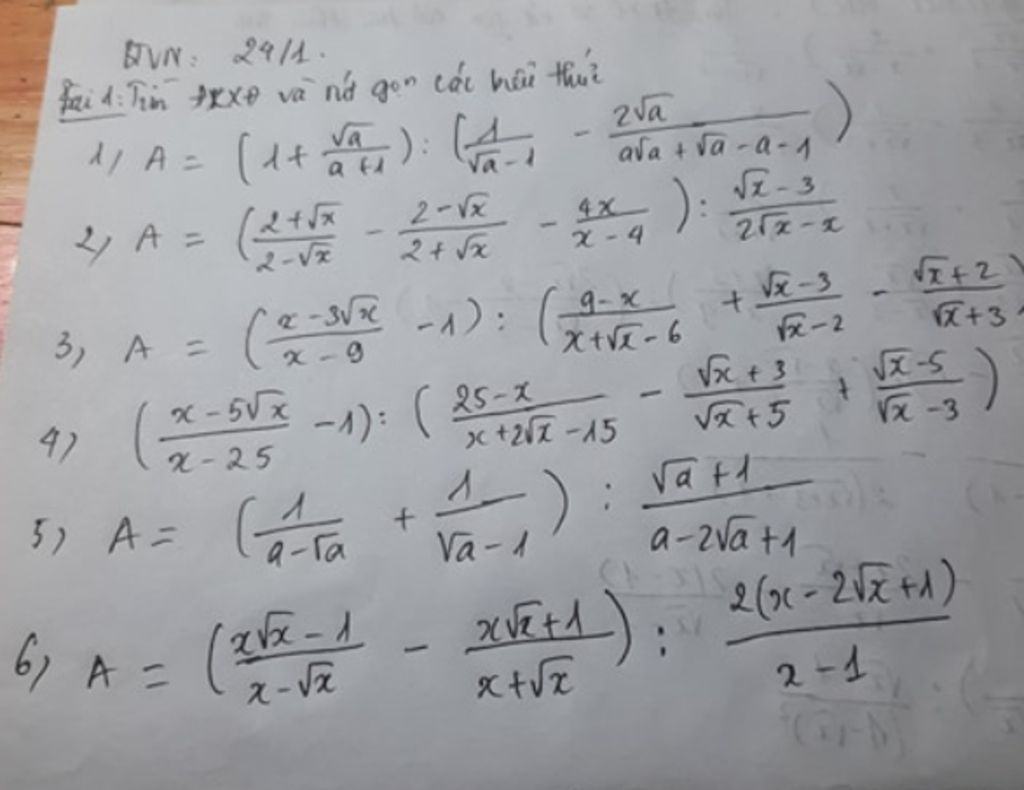 BTVN: 29/1.
Bài 1: Tìm ĐKXĐ và rút gọn các biểu thức
1) A = (1 + √a/(a+1)) : (1/(√a-1) - 2√a/(a√a + √a - a - 1))
2) A = ((2+√x)/(2-√x) - (2-√x)/(2+√x) - 4x/(x-4)) : (√x-3)/(2√x-x)
3) A = ((x-3√x)/(x-9) - 1) : ((9-x)/(x+√x-6) + (√x-3)/(√x-2) - (√x+2)/(√x+3))
4) ((x-5√x)/(x-25) - 1) : ((25-x)/(x+2√x-15) - (√x+3)/(√x+5) + (√x-5)/(√x-3))
5) A = (1/(a-√a) + 1/(√a-1)) : (√a+1)/(a-2√a+1)
6) A = ((x√x-1)/(x-√x) - (x√x+1)/(x+√x)) : 2(x-2√x+1)/(x-1)